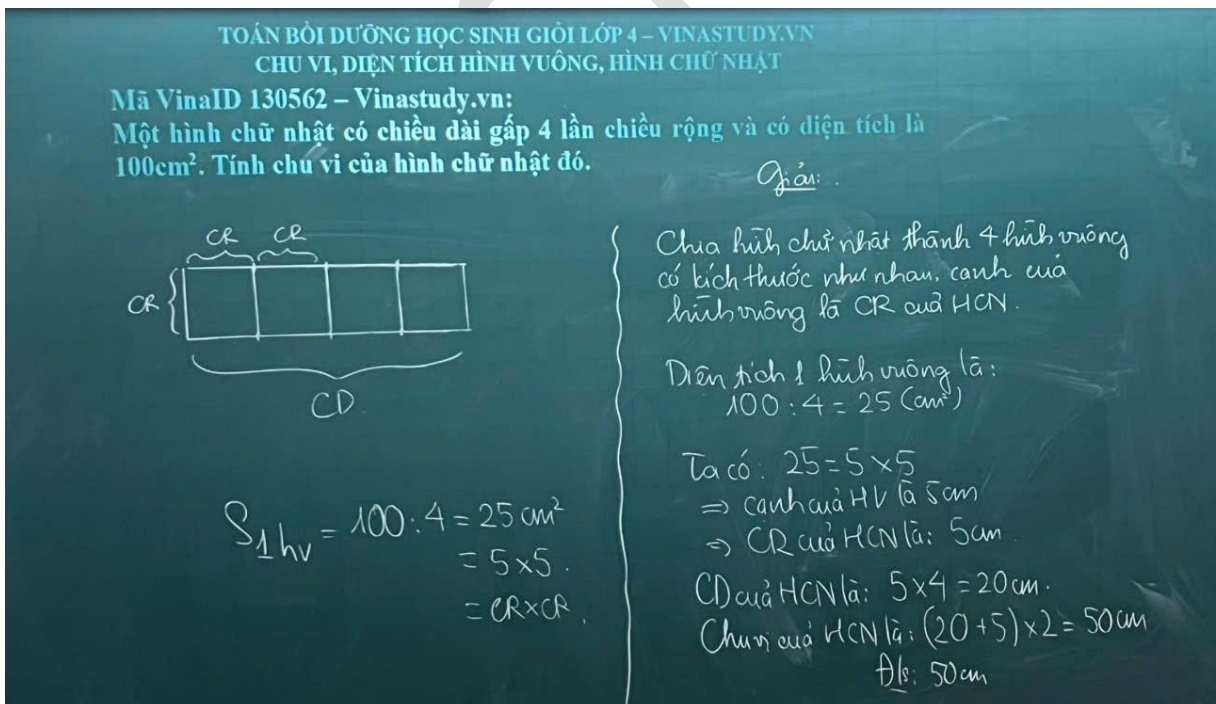 TOÁN BỒI DƯỠNG HỌC SINH GIỎI LỚP 4 – VINASTUDY.VN
CHU VI, DIỆN TÍCH HÌNH VUÔNG, HÌNH CHỮ NHẬT
Mã VinaID 130562 – Vinastudy.vn:
Một hình chữ nhật có chiều dài gấp 4 lần chiều rộng và có diện tích là
100cm². Tính chu vi của hình chữ nhật đó.
CR CR
CR
CD.
S1hv = 100 : 4 = 25 cm²
= 5 × 5.
= CR × CR.
Giải:
Chia hình chữ nhật thành 4 hình vuông
có kích thước như nhau, cạnh của
hình vuông là CR của HCN.
Diện tích 1 hình vuông là:
100 : 4 = 25 (cm²)
Ta có: 25 = 5 × 5
⇒ cạnh của HV là 5cm
⇒ CR của HCN là: 5cm.
CD của HCN là: 5 × 4 = 20 cm.
Chu vi của HCN là: (20 + 5) × 2 = 50 cm
Đ/s: 50 cm